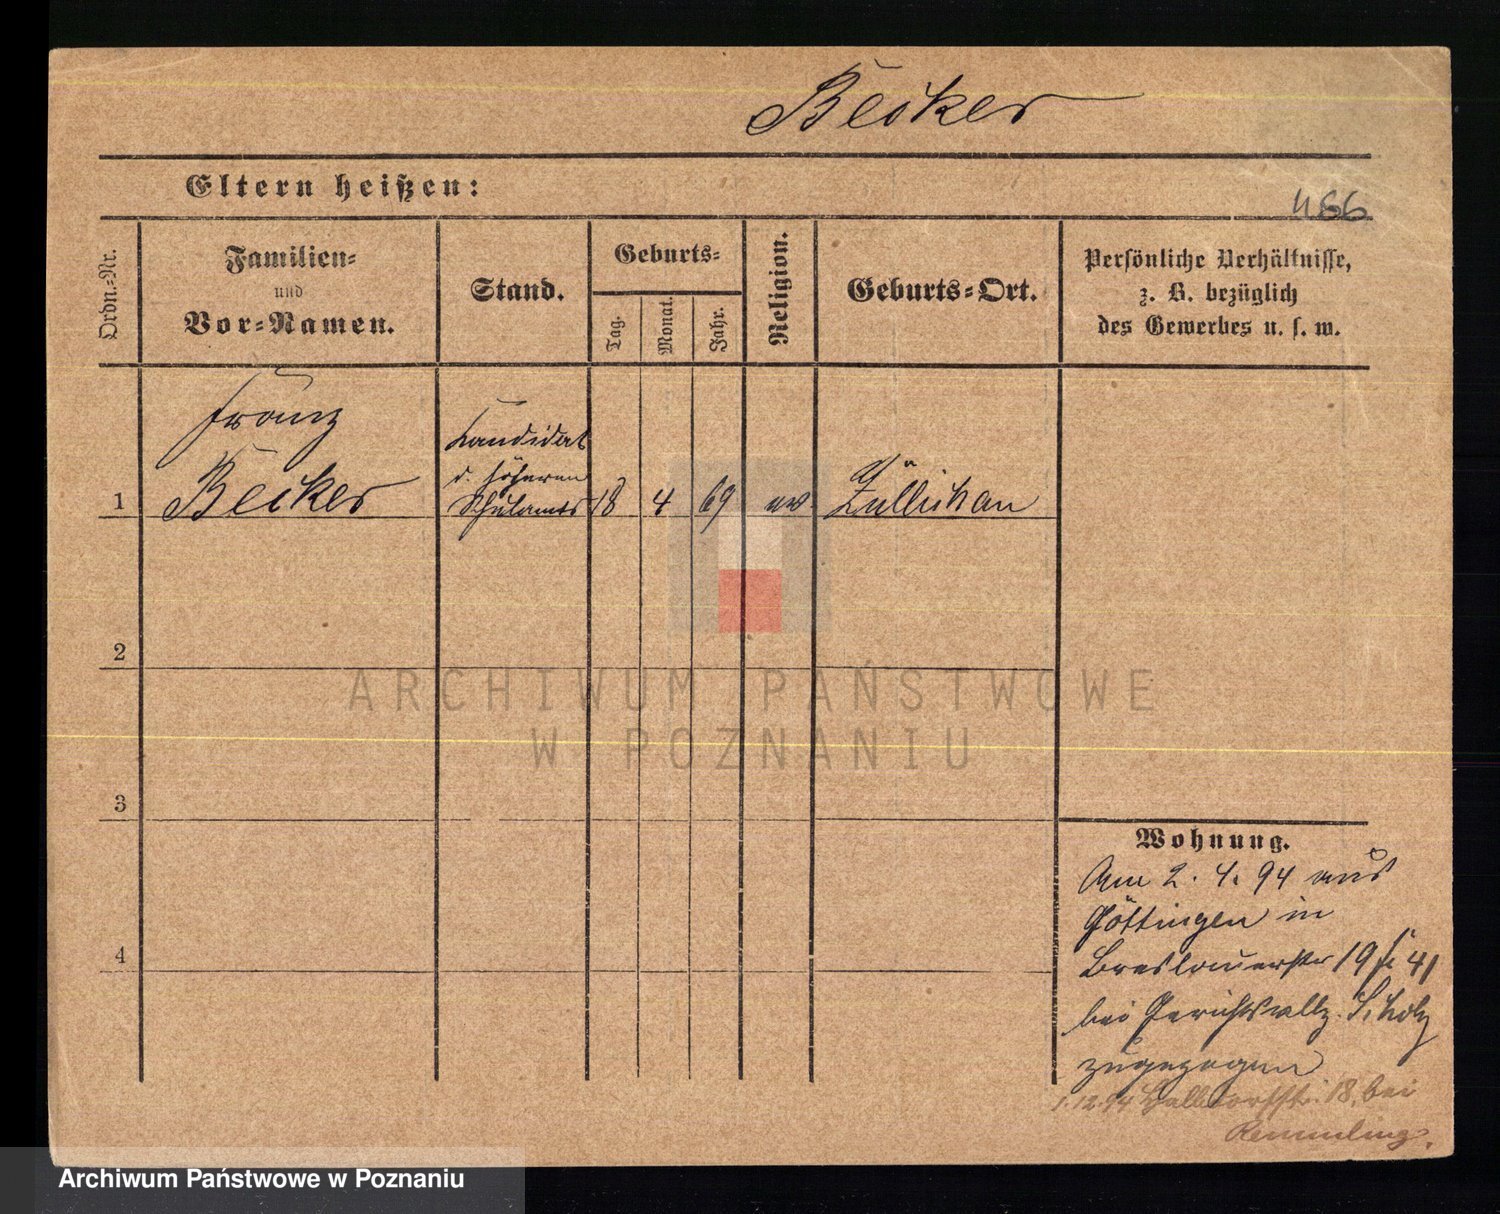 Becker
Eltern heißen:
466
Ordn.-Nr.
Familien-
und
Vor-Namen.
Stand.
Geburts-
Tag.
Monat.
Jahr.
Religion.
Geburts-Ort.
Persönliche Verhältnisse,
z. B. bezüglich
des Gewerbes u. s. w.
Franz
Becker
Kandidat
d. höheren
Schulamts
1
18
4
69
ev
Züllichau
2
3
4
Wohnung.
Am 2. 4. 94 aus
Göttingen in
Breslauerstr 19 41
bei Gerichtsvollz. Scholz
zugezogen
1.12.94 Halbdorfstr. 18, bei
Remmling.
ARCHIWUM PAŃSTWOWE
W POZNANIU
Archiwum Państwowe w Poznaniu